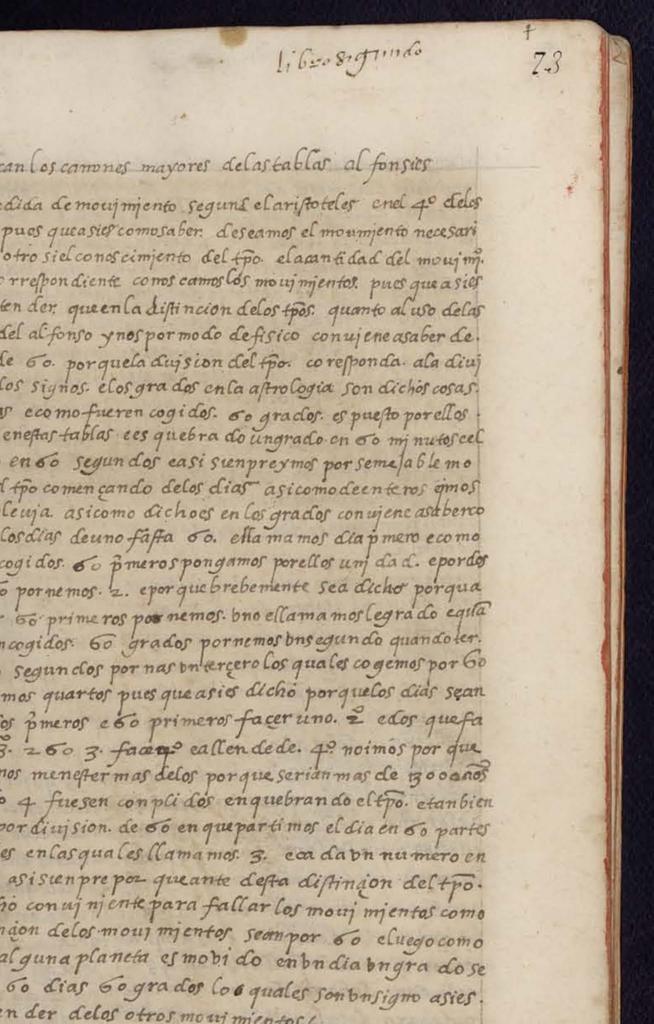 libro segundo
73
can los canones mayores delas tablas alfonsies
edida de movimiento segund el aristoteles enel 4º delos
pues que asi es como saber. deseamos el movimiento necesari
otro si el conoscimiento del tpo. ela cantidad del movimi.
orrespondiente conoscamos los movimientos. pues que asi es
tender. que en la distincion delos tpos. quanto al uso delas
del alfonso y nos por modo de fisico conviene a saber de.
de 60. porque la division del tpo. coresponda. ala divi
los signos. elos grados en la astrologia son dichos cosas.
as ecomo fueren cogidos. 60 grados. es puesto por ellos.
en estas tablas e es quebrado un grado en 60 minutos e el
en 60 segundos easi sienpre ymos por semejable mo
l tpo començando delos dias asi como de enteros
asi como dicho es en los grados conviene asaber co
los dias de uno fasta 60. ellamamos dia pmero ecomo
cogidos. 60 pmeros pongamos por ellos unidad. epor dos
o pornemos. 2. eporque brebemente sea dicho por qua
60 primeros pornemos. uno ellamamosle grado equa
ncogidos. 60 grados pornemos un segundo quando ter.
segundos pornas un terçero los quales cogemos por 60
mos quartos pues que asi es dicho porque los dias sean
os pmeros e 60 primeros façer uno. 2º edos que fa
3. 2 60 3. façer 4º e allende de. 4º no imos por que
nos menester mas delos porque serian mas de 13000 años
o 4 fuesen conplidos en quebrando el tpo. etanbien
por division. de 60 en que partimos el dia en 60 partes
es en las quales llamamos. 3. ecada un numero en
asi sienpre por que ante desta distinçion del tpo.
conviniente para fallar los movimientos como
nçion delos movimientos sean por 60 eluego como
alguna planeta es movido en un dia un grado se
60 dias 60 grados los quales son un signo asi es.
ender delos otros movimientos